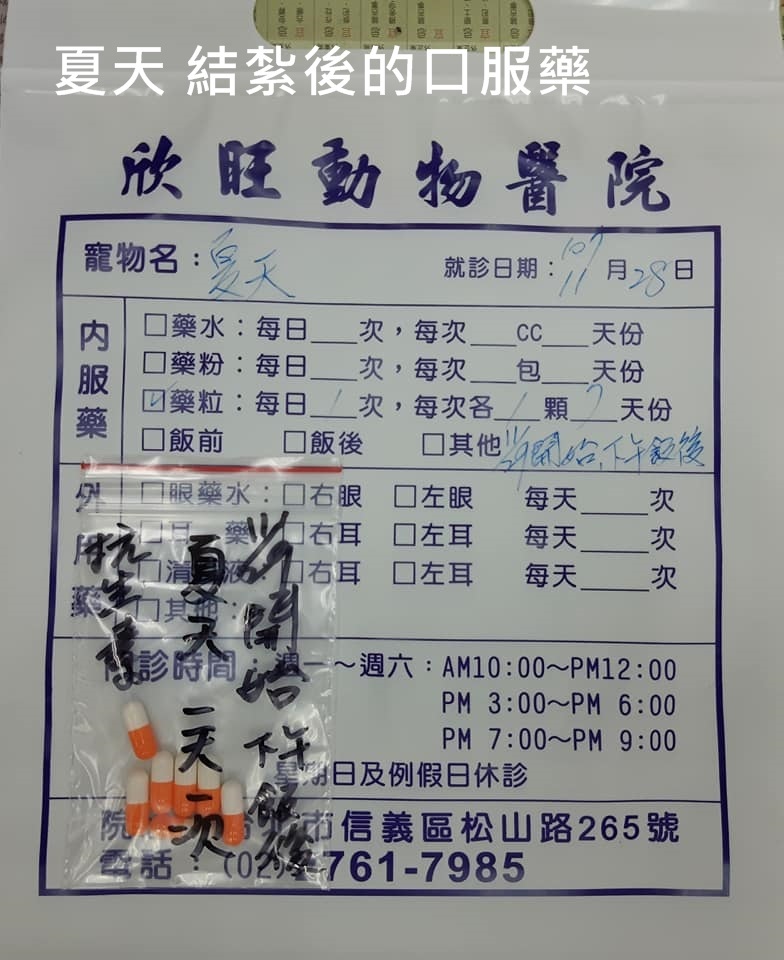 夏天 結紮後的口服藥
欣旺動物醫院
寵物名：夏天 就診日期：107 11月28日
內服藥
□藥水：每日___次，每次___CC___天份
□藥粉：每日___次，每次___包___天份
☑藥粒：每日1次，每次各1顆7天份
□飯前 □飯後 □其他 開始，下午飯後
外用藥
□眼藥水：□右眼 □左眼 每天____次
□耳 藥 □右耳 □左耳 每天____次
□清 液 □右耳 □左耳 每天____次
□其他：
診時間：週一～週六：AM10:00～PM12:00
PM 3:00～PM 6:00
PM 7:00～PM 9:00
星期日及例假日休診
院 市信義區松山路265號
電話：(02)2761-7985
開始 下午 飯後
夏天 一天一次
抗生素